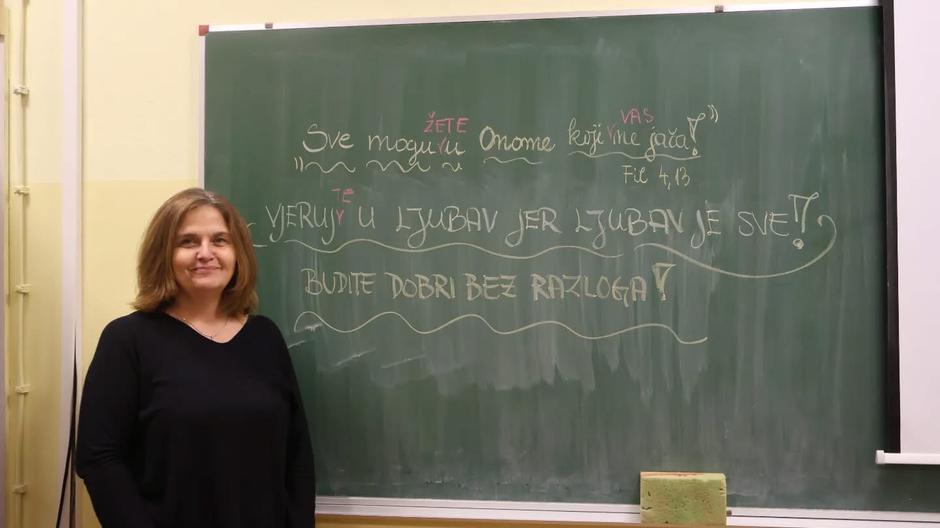 ŽETE VAS
"Sve mogu u Onome koji me jača!"
Fil 4,13
TE
VJERUJ U LJUBAV JER LJUBAV JE SVE!
BUDITE DOBRI BEZ RAZLOGA!